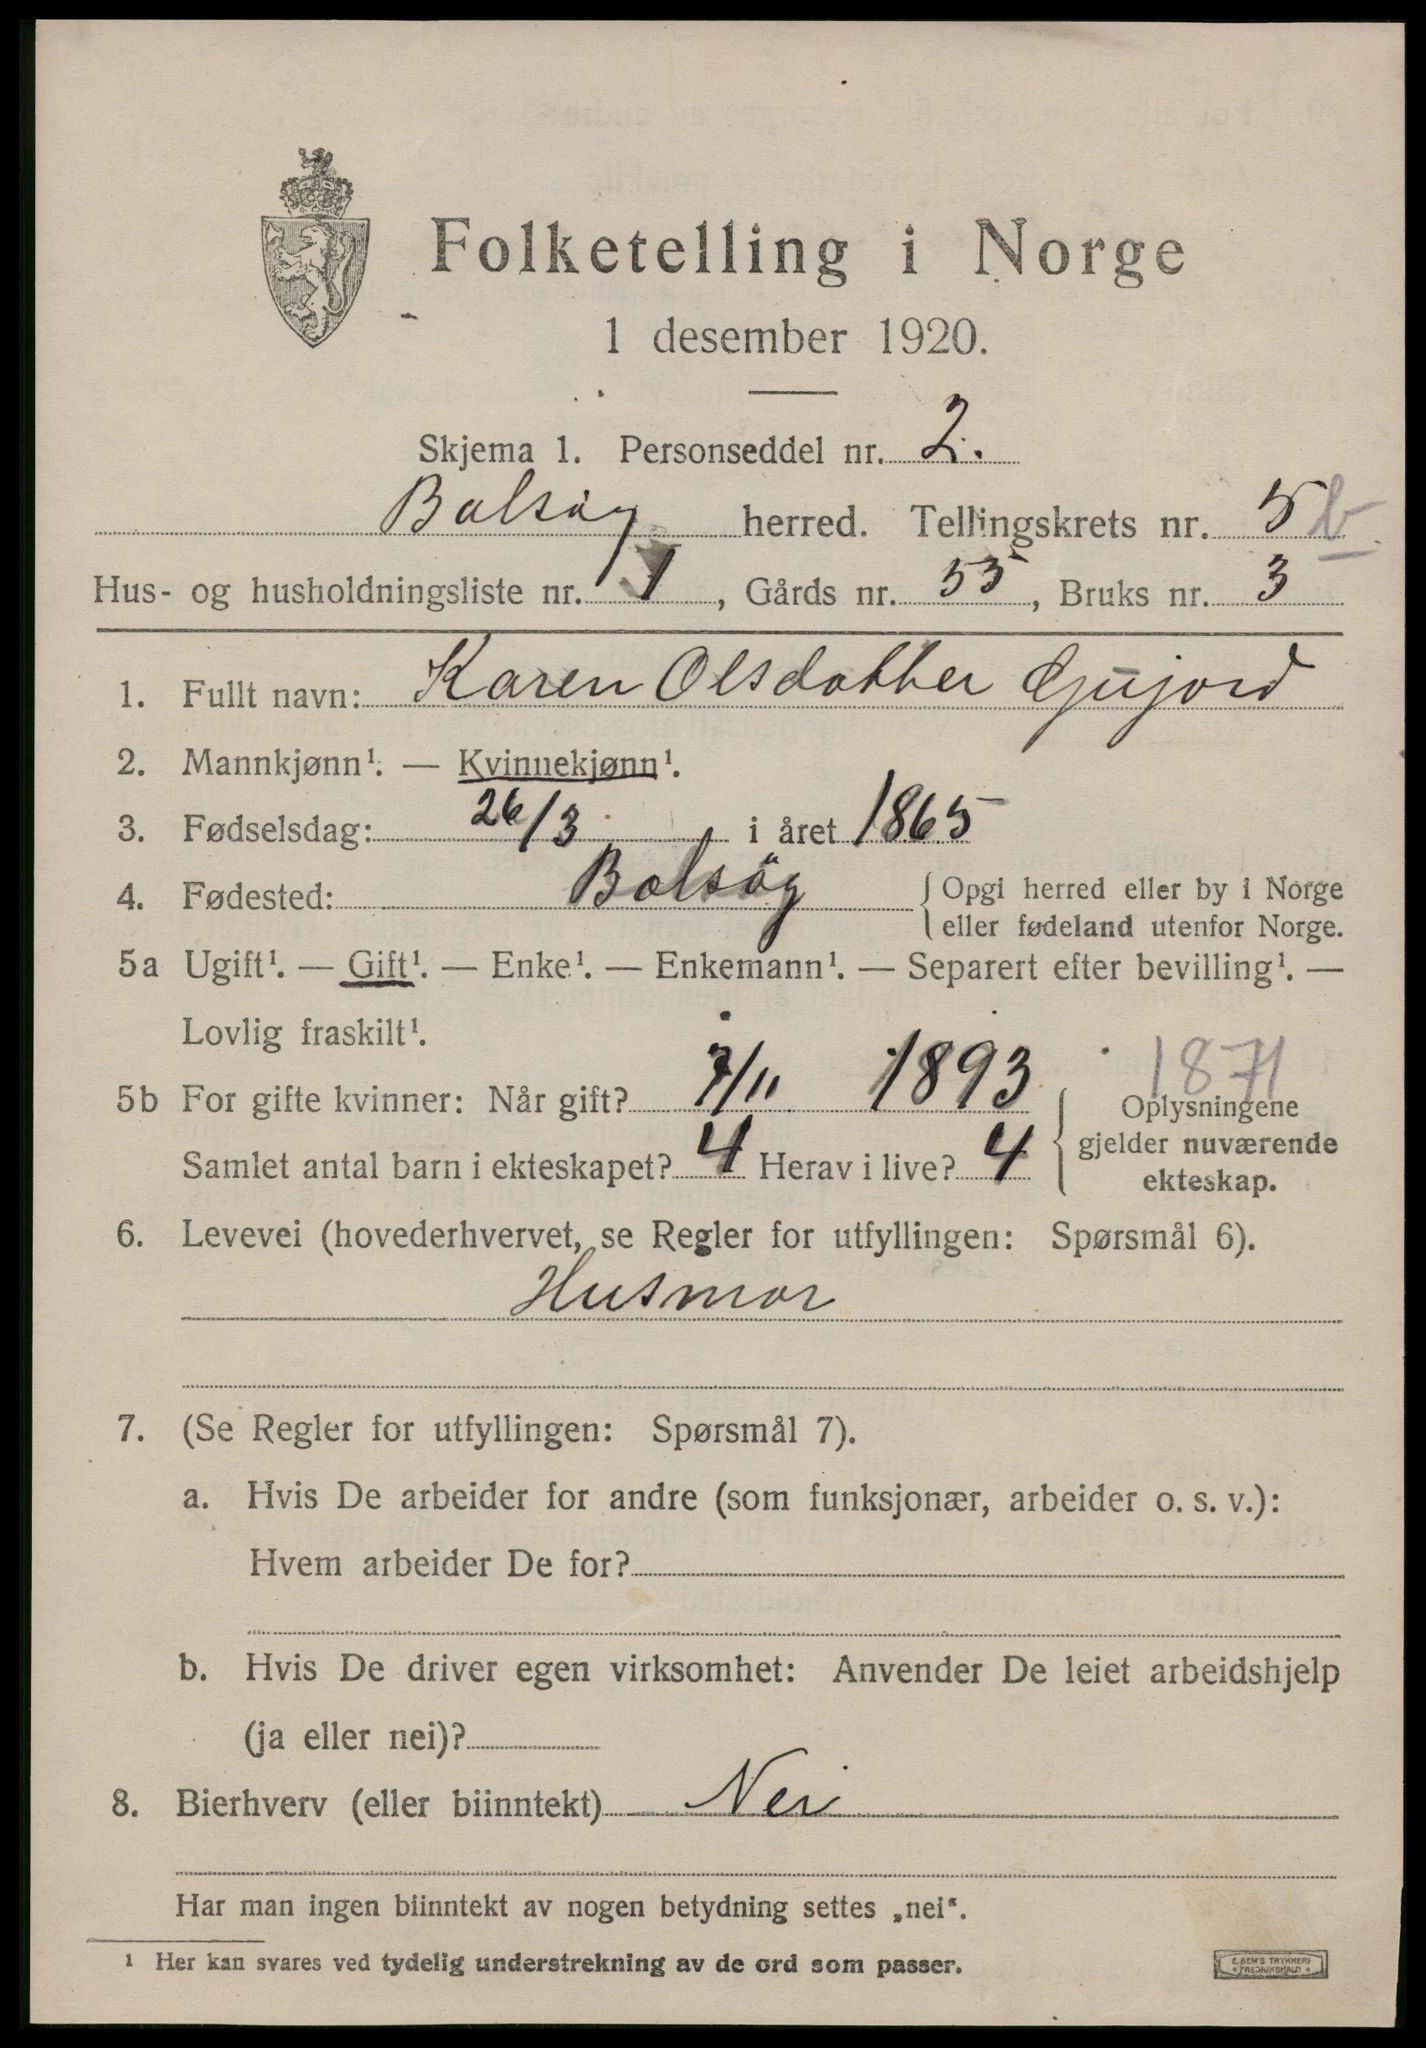 Folketelling i Norge
1 desember 1920.
Skjema 1. Personseddel nr. 2.
Bolsöy herred. Tellingskrets nr. 5 b
Hus- og husholdningsliste nr. 1, Gårds nr. 55, Bruks nr. 3
1. Fullt navn: Karen Olsdatter Gujord
2. Mannkjønn¹. — Kvinnekjønn¹.
3. Fødselsdag: 26/3 i året 1865
4. Fødested: Bolsöy { Opgi herred eller by i Norge
eller fødeland utenfor Norge.
5a Ugift¹. — Gift¹. — Enke¹. — Enkemann¹. — Separert efter bevilling¹. —
Lovlig fraskilt¹.
1871
5b For gifte kvinner: Når gift? 7/11 1893 { Oplysningene
gjelder nuværende
Samlet antal barn i ekteskapet? 4 Herav i live? 4
ekteskap.
6. Levevei (hovederhvervet, se Regler for utfyllingen: Spørsmål 6).
Husmor
7. (Se Regler for utfyllingen: Spørsmål 7).
a. Hvis De arbeider for andre (som funksjonær, arbeider o. s. v.):
Hvem arbeider De for?
b. Hvis De driver egen virksomhet: Anvender De leiet arbeidshjelp
(ja eller nei)?
8. Bierhverv (eller biinntekt) Nei
Har man ingen biinntekt av nogen betydning settes „nei“.
¹ Her kan svares ved tydelig understrekning av de ord som passer.
E. SEM'S TRYKKERI
FREDRIKSHALD